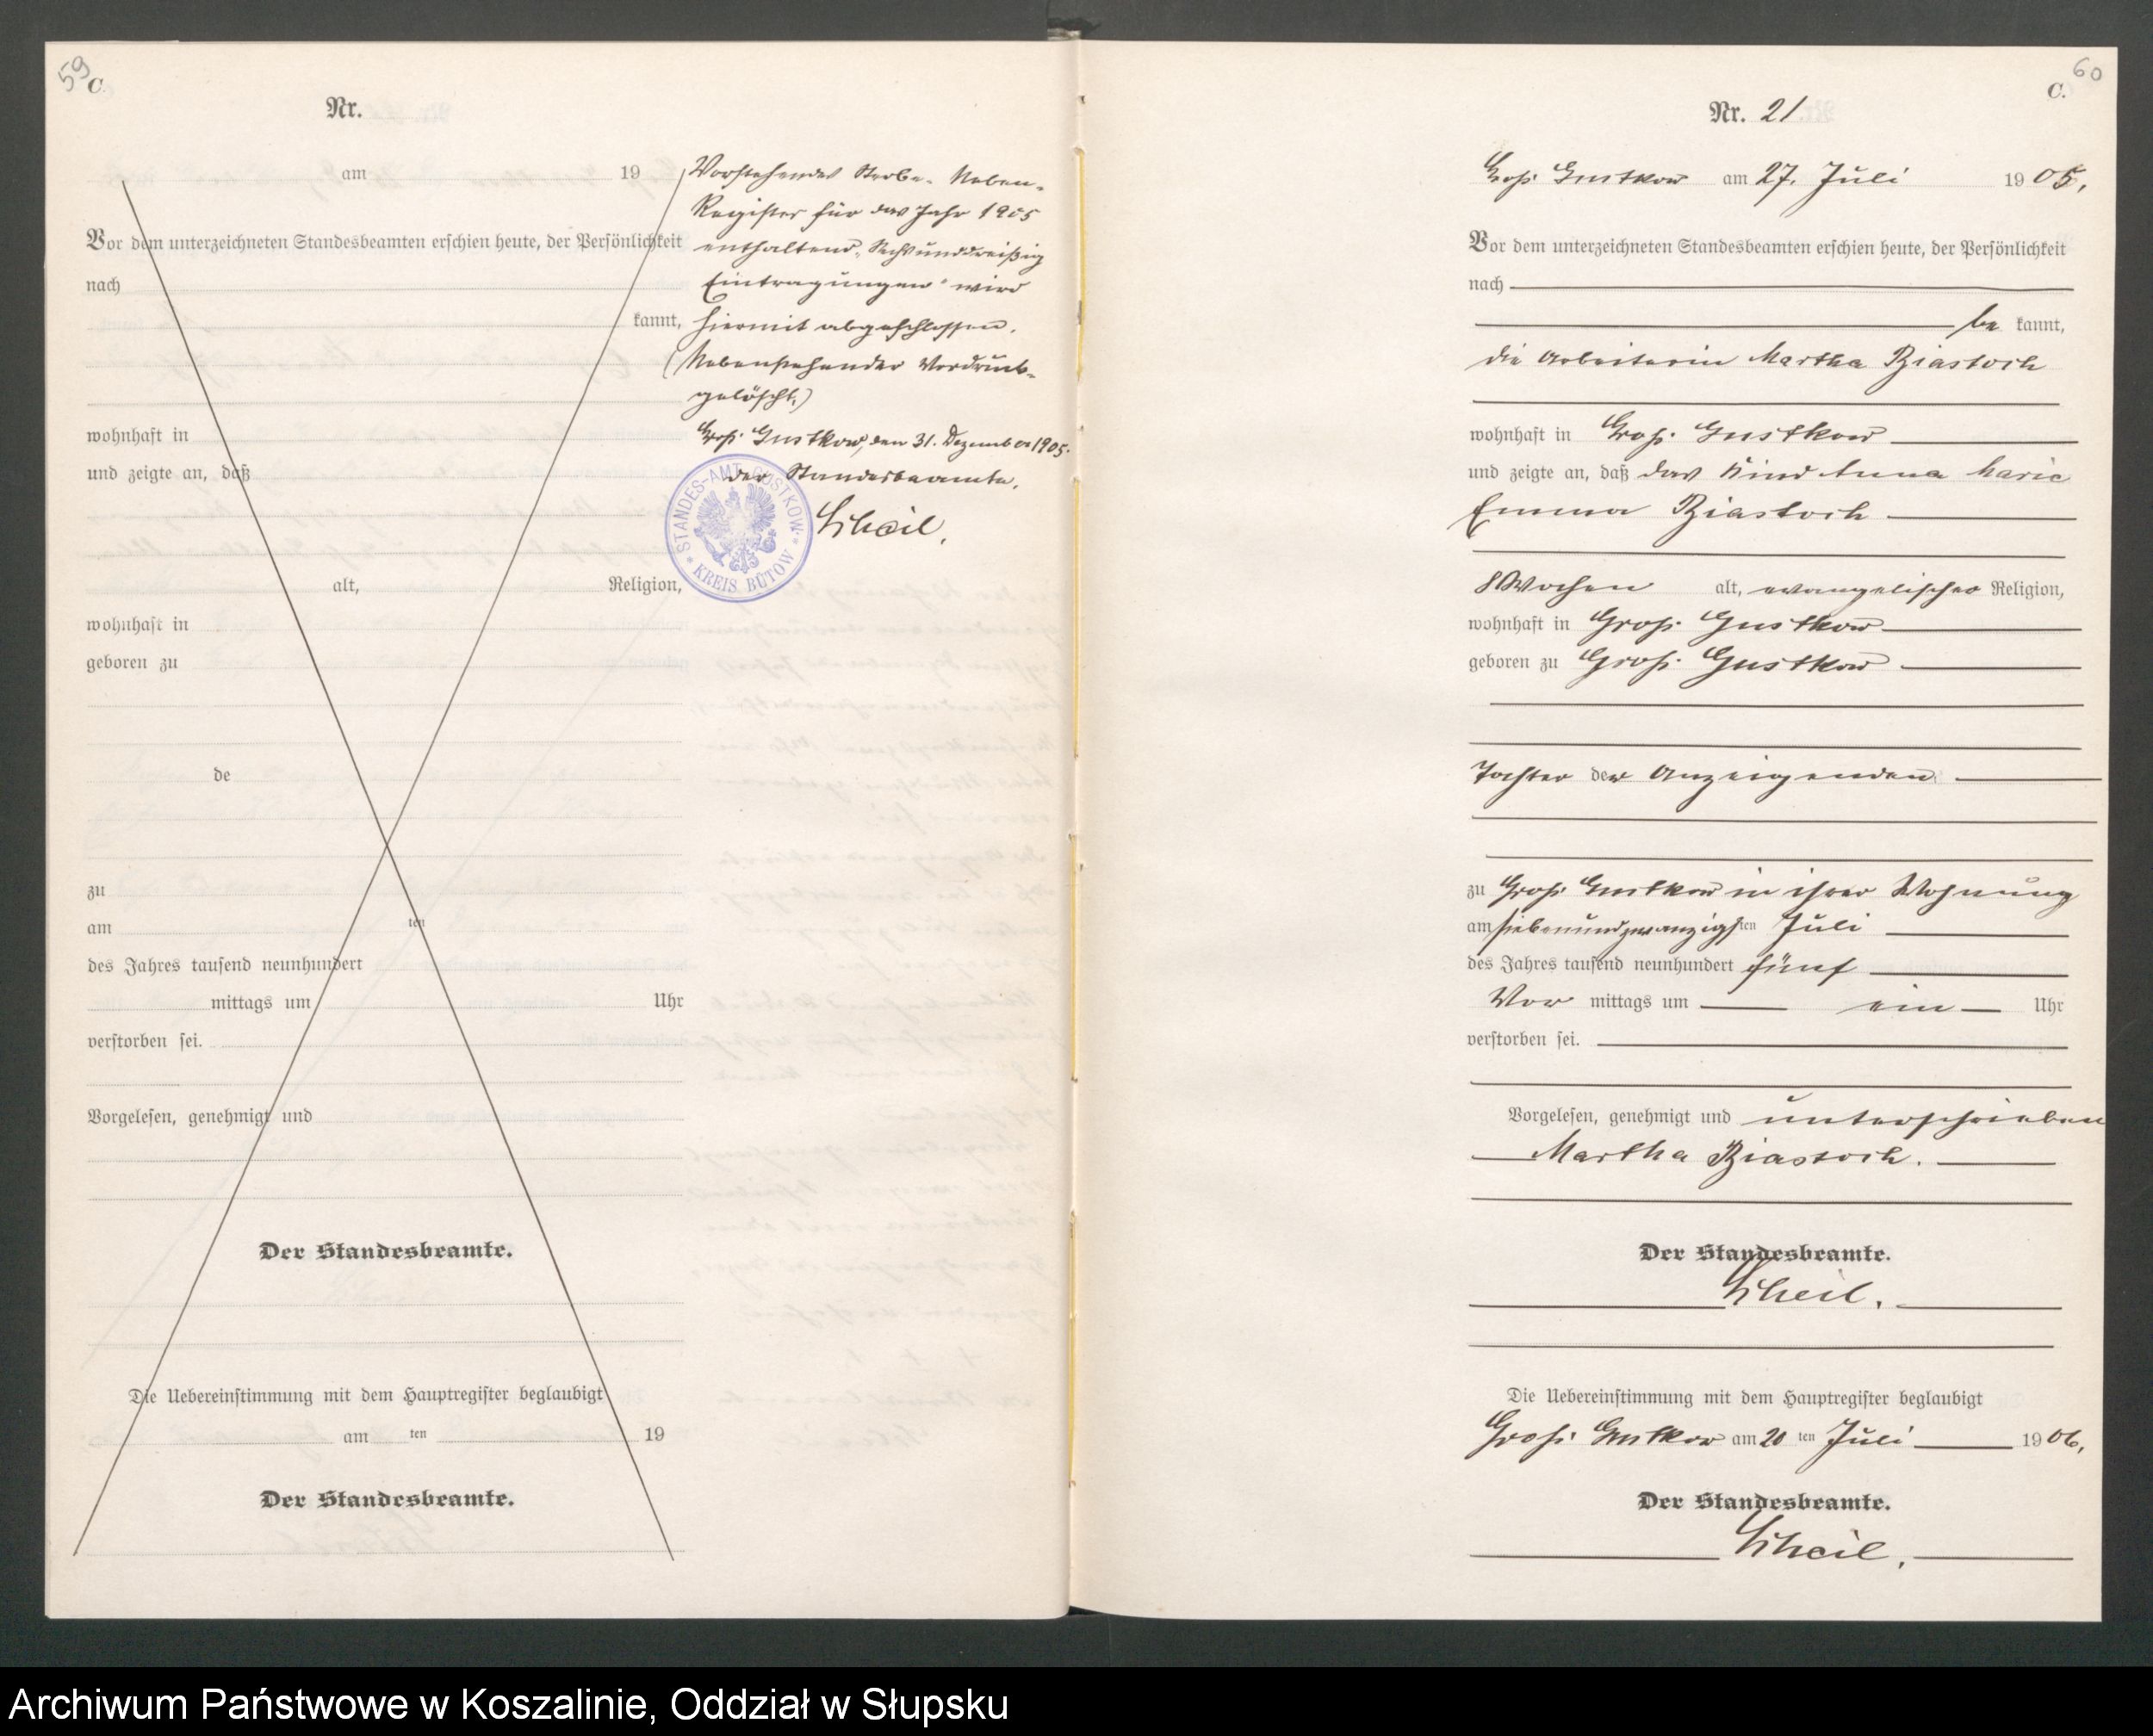 59
C.
Nr.
am 19
Vor dem unterzeichneten Standesbeamten erschien heute, der Persönlichkeit
nach
kannt,
wohnhaft in
und zeigte an, daß
alt, Religion,
wohnhaft in
geboren zu
de
zu
am ten
des Jahres tausend neunhundert
mittags um Uhr
verstorben sei.
Vorgelesen, genehmigt und
Der Standesbeamte.
Die Uebereinstimmung mit dem Hauptregister beglaubigt
am ten 19
Der Standesbeamte.
Vorstehendes Sterbe-Neben-
Register für das Jahr 1905
enthaltend „Sechsunddreißig
Eintragungen“ wird
hiermit abgeschlossen.
(Nebenstehender Vordruck
gelöscht.)
Groß Gustkow, den 31. Dezember 1905.
Der Standesbeamte.
Scheil.
STANDES-AMT GUSTKOW
KREIS BÜTOW
60
C.
Nr. 21
Groß Gustkow am 27. Juli 1905.
Vor dem unterzeichneten Standesbeamten erschien heute, der Persönlichkeit
nach
be kannt,
die Arbeiterin Martha Biastoch
wohnhaft in Groß Gustkow
und zeigte an, daß das Kind Anna Marie
Emma Biastoch
8 Wochen alt, evangelischer Religion,
wohnhaft in Groß Gustkow
geboren zu Groß Gustkow
Tochter der Anzeigenden
zu Groß Gustkow in ihrer Wohnung
am siebenundzwanzigsten Juli
des Jahres tausend neunhundert fünf
Vor mittags um ein Uhr
verstorben sei.
Vorgelesen, genehmigt und unterschrieben
Martha Biastoch.
Der Standesbeamte.
Scheil.
Die Uebereinstimmung mit dem Hauptregister beglaubigt
Groß Gustkow am 20 ten Juli 1906.
Der Standesbeamte.
Scheil.
Archiwum Państwowe w Koszalinie, Oddział w Słupsku